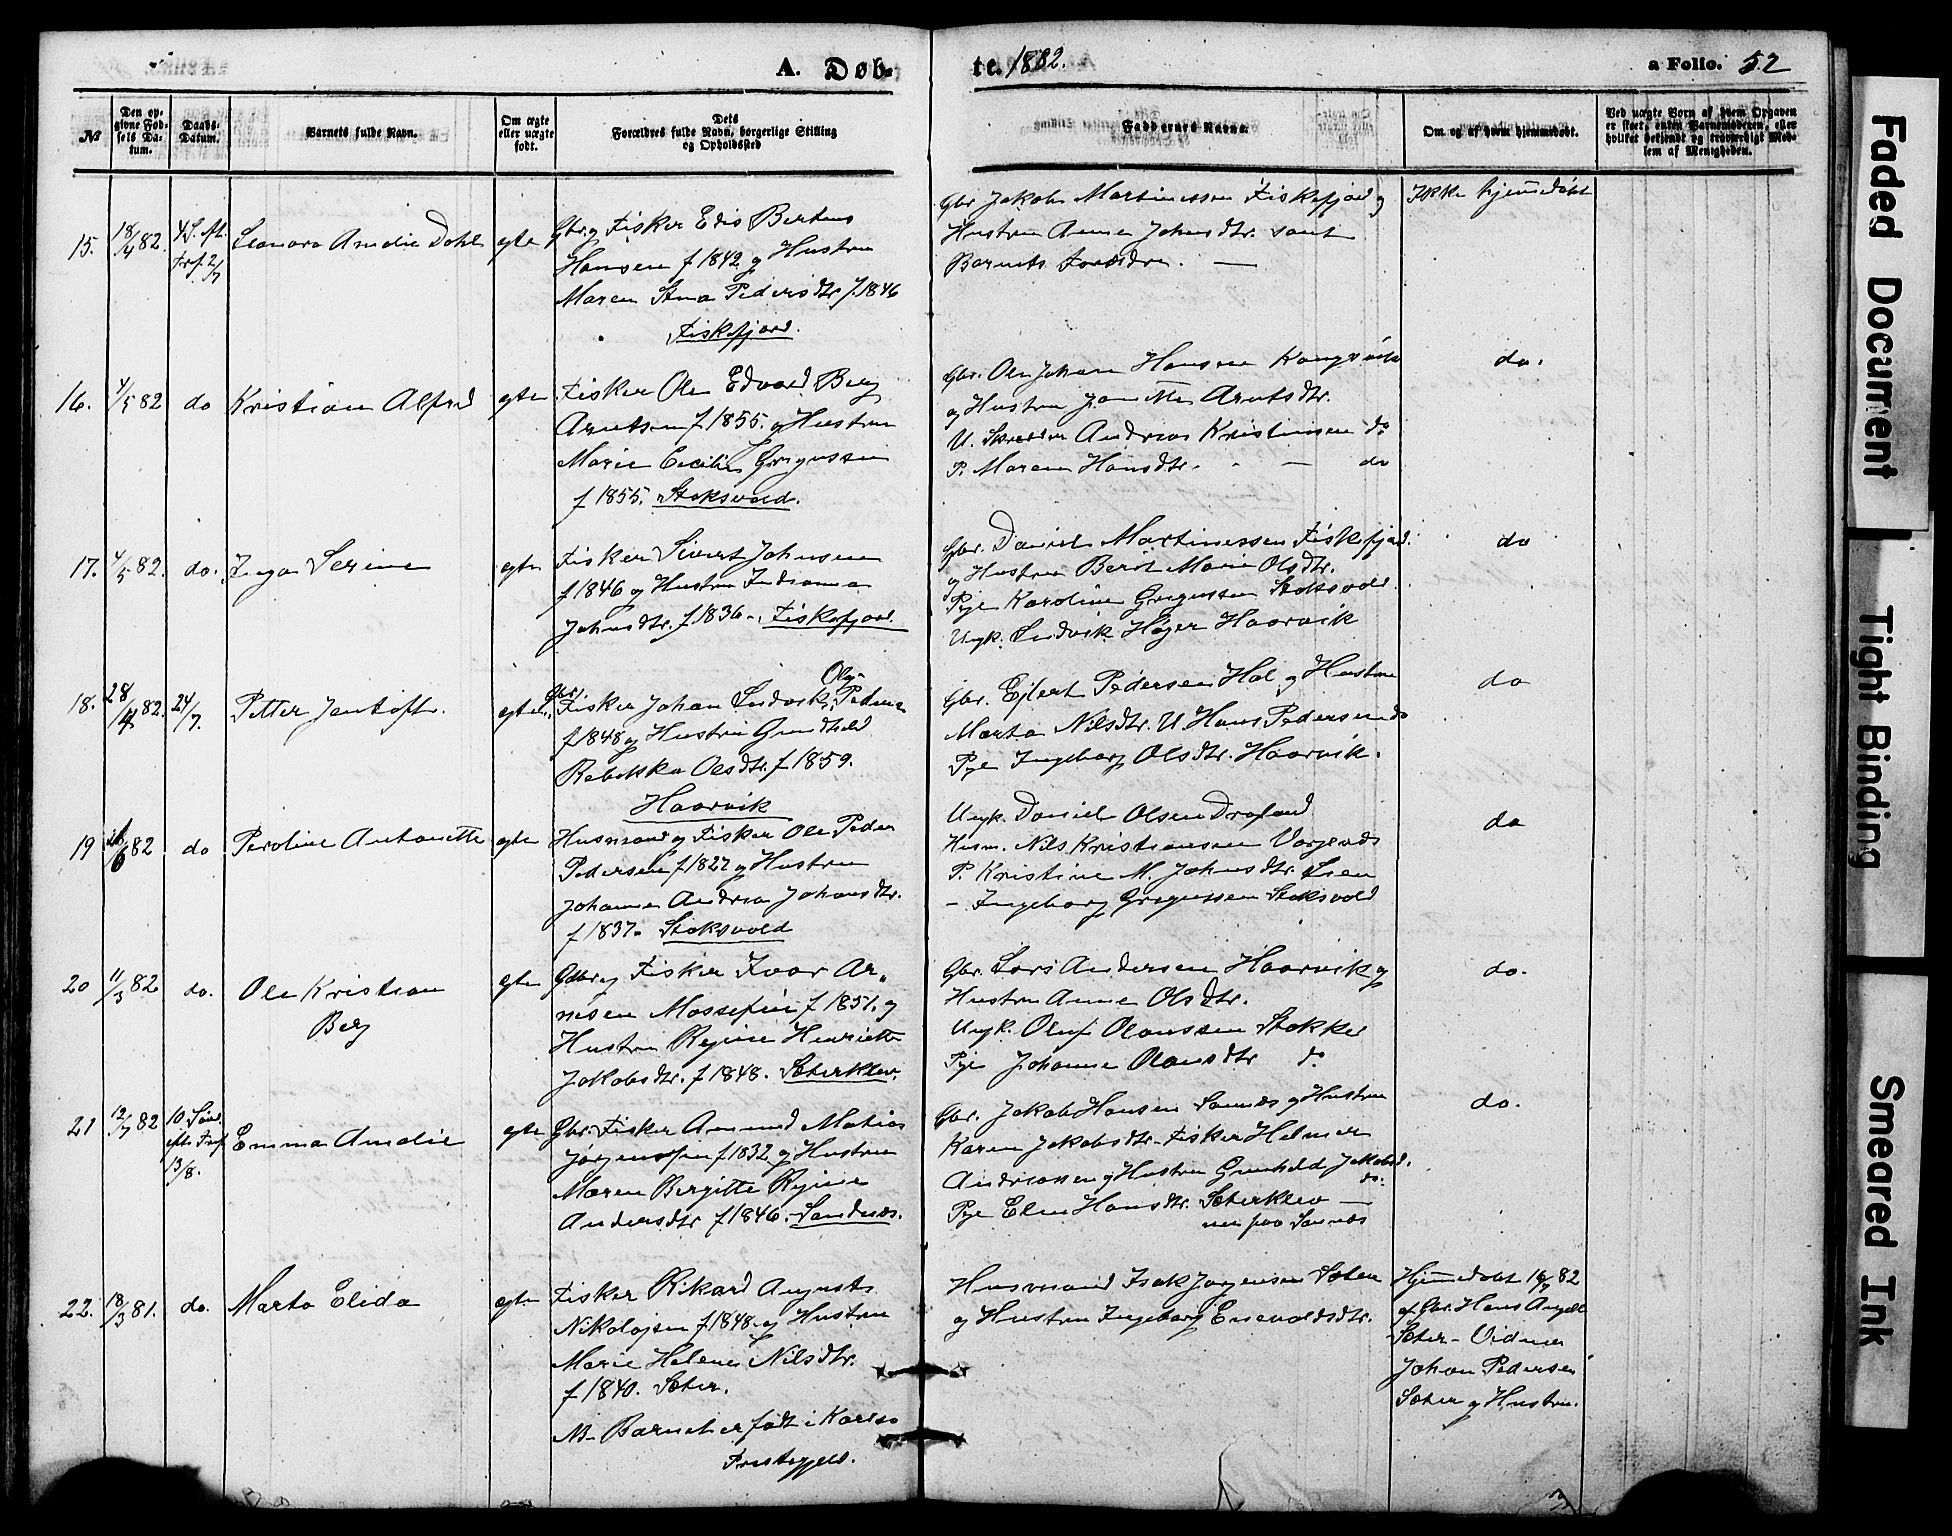 A. Døb-
te. 1882.
a Folio. 52
№
Den op-
givne Fød-
sels Da-
tum.
Daabs-
Datum.
Barnets fulde Navn.
Om ægte
eller uægte
født.
Dets
Forældres fulde Navn, borgerlige Stilling
og Opholdssted
Faddernes Navne.
Om og af hvem hjemmedøbt.
Ved uægte Børn af hvem Opgaven
er skeet, enten Barnemoderen, eller
hvilket bekjendt og troværdigt Med-
lem af Menigheden.
15.
18/4 82.
4 S. eft.
Tref. 2/7
Leonora Amalie Dahl
egte
Gbr. og Fisker Edis Bertens
Hansen f 1842 og Hustru
Maren Ana Pedersdtr. f. 1846
Fiskefjord.
Gbr. Jakob Martinessen Fiskefjord og
Hustru Anne Johnsdtr. samt
Barnets Forældre. —
Ikke hjemmedøbt
16.
4/5 82
do
Kristian Alfred
egte
Fisker Ole Edvard Berg
Arntsen f 1855. og Hustru
Marie Cecilie Gregussen
f 1855. Stoksvold.
Gbr. Ole Johan Hansen
og Hustru Janette Arntsdtr.
U. Skredder Andreas Kristensen do
P. Maren Hansdtr. - — do
do.
17.
4/5 82.
do.
Inga Serine
egte
Fisker Sivert Johnsen
f 1846 og Hustru Indianna
Johnsdtr. f. 1836 -. Fiskefjord.
Gbr. Daniel Martinessen Fiskefjord.
og Hustru Berit Marie Olsdtr.
Pige Karoline Gregussen Stoksvold
Ungk. Ludvik Høyer Haarvik
do
18.
28/4 82.
24/7.
Petter Jentoft.
egte
Gbr. Fisker Johan Ludvik Olg- Pedersen
f 1848 og Hustru Gunhild
Rebekka Olsdtr. f 1859.
Haarvik
Gbr. Ejlert Pedersen Hol og Hustru
Marta Nilsdtr. U. Hans Pedersen do
Pige Ingeborg Olsdtr. Haarvik.
do
19
/6 82
do
Peroline Antonette
egte
Husmand og Fisker Ole Peder
Pedersen f 1822 og Hustru
Johanna Andrea Johansdtr.
f 1837. Stoksvold
Ungk. Daniel Olsen
Husm. Nils Kristiansen
P. Kristine M. Johnsdtr. Lien
- Ingeborg Gregussen Stoksvold
do
20
11/3 82
do.
Ole Kristian
Berg
egte
Gbr. og Fisker Ivar Ar-
nesen Mossefin f 1851. og
Hustru Regine Henriette
Jakobsdtr. f 1848. Sæterklev.
Gbr. Lars Andersen Haarvik og
Hustru Anne Olsdtr.
Ungk. Oluf Olaussen Stokke
Pige Johanne Olausdtr do
do.
21
12/7 82
10. Sønd.
efter Tref.
13/8.
Emma Amalie
egte
Gbr. Fisker Amund Matias
Jørgenssen f 1832 og Hustru
Maren Bergitte Regine
Andersdtr f 1846. Sandnæs.
Gbr. Jakob Hansen Sannæs og Hustru
Karen Jakobsdtr. Fisker Helmer
Andreassen og Hustru Gunhild Jakobsd. do.
Pige Elen Hansdtr. Sæterklev —
nu paa Sannæs
do.
22.
18/3 81.
do.
Marta Elida
egte
Fisker Rikard Augusts
Nikolajsen f 1848. og Hustru
Marie Helene Nilsdtr.
f 1840. Sæter.
NB. Barnet er født i Karlsø
Prestegjeld.
Husmand Isak Jørgensen Sæter
og Hustru Ingeborg Enevoldsdtr.
Hjemmedøbt 82
af Gbr. Hans Angell
Sæter - Vidner
Johan Pedersen
Sæter og Hustru.
Faded Document
Tight Binding
Smeared Ink